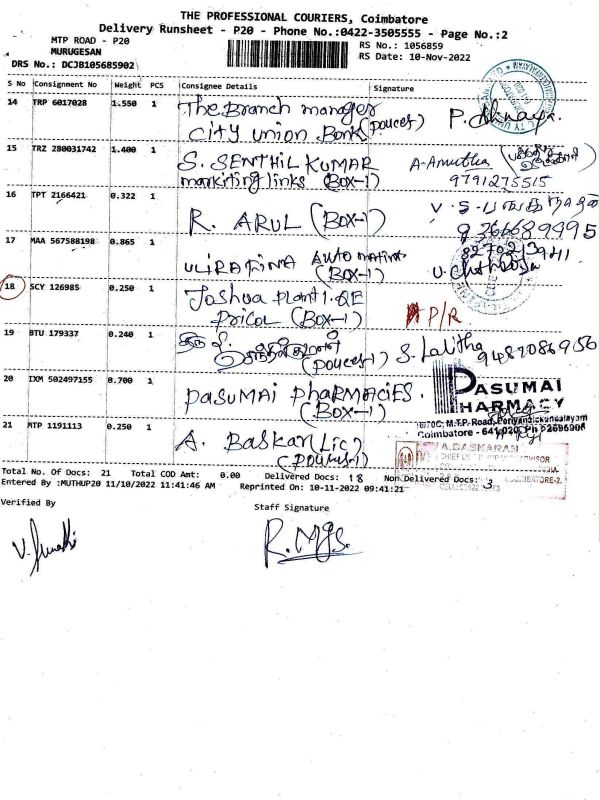 THE PROFESSIONAL COURIERS, Coimbatore
Delivery Runsheet - P20 - Phone No.:0422-3505555 - Page No.:2
MTP ROAD - P20
MURUGESAN
RS No.: 1056859
RS Date: 10-Nov-2022
DRS No.: DCJB105685902
S No Consignment No Weight PCS Consignee Details Signature
14 TRP 6017028 1.550 1 The Branch manager
City union Bank (pouces)
15 TRZ 280031742 1.400 1 S. SENTHIL KUMAR A-Amutha
markiting links (BOX-1) 9791275515
16 TPT 2166421 0.322 1 R. ARUL (BOX-1) V.S.
9366689995
17 MAA 567588198 0.865 1
(BOX-1)
18 SCY 126985 0.250 1 Joshua plant 1. QE
pricol (BOX-1) P/R
19 BTU 179337 0.240 1 திரு
(pouces-1) S. Lalitha 9487086956
20 IXM 502497155 0.700 1 pasumai pharmacies.
(BOX-1)
PASUMAI
PHARMACY
M.T.P. Road, Periyanaickenpalayam
Coimbatore - 641 020.
21 MTP 1191113 0.250 1 A. Baskar (Lic)
A. BASKARAN
Total No. Of Docs: 21 Total COD Amt: 0.00 Delivered Docs: 18 Non Delivered Docs: 3
Entered By :MUTHUP20 11/10/2022 11:41:46 AM Reprinted On: 10-11-2022 09:41:21
Verified By Staff Signature
R. Mgs.